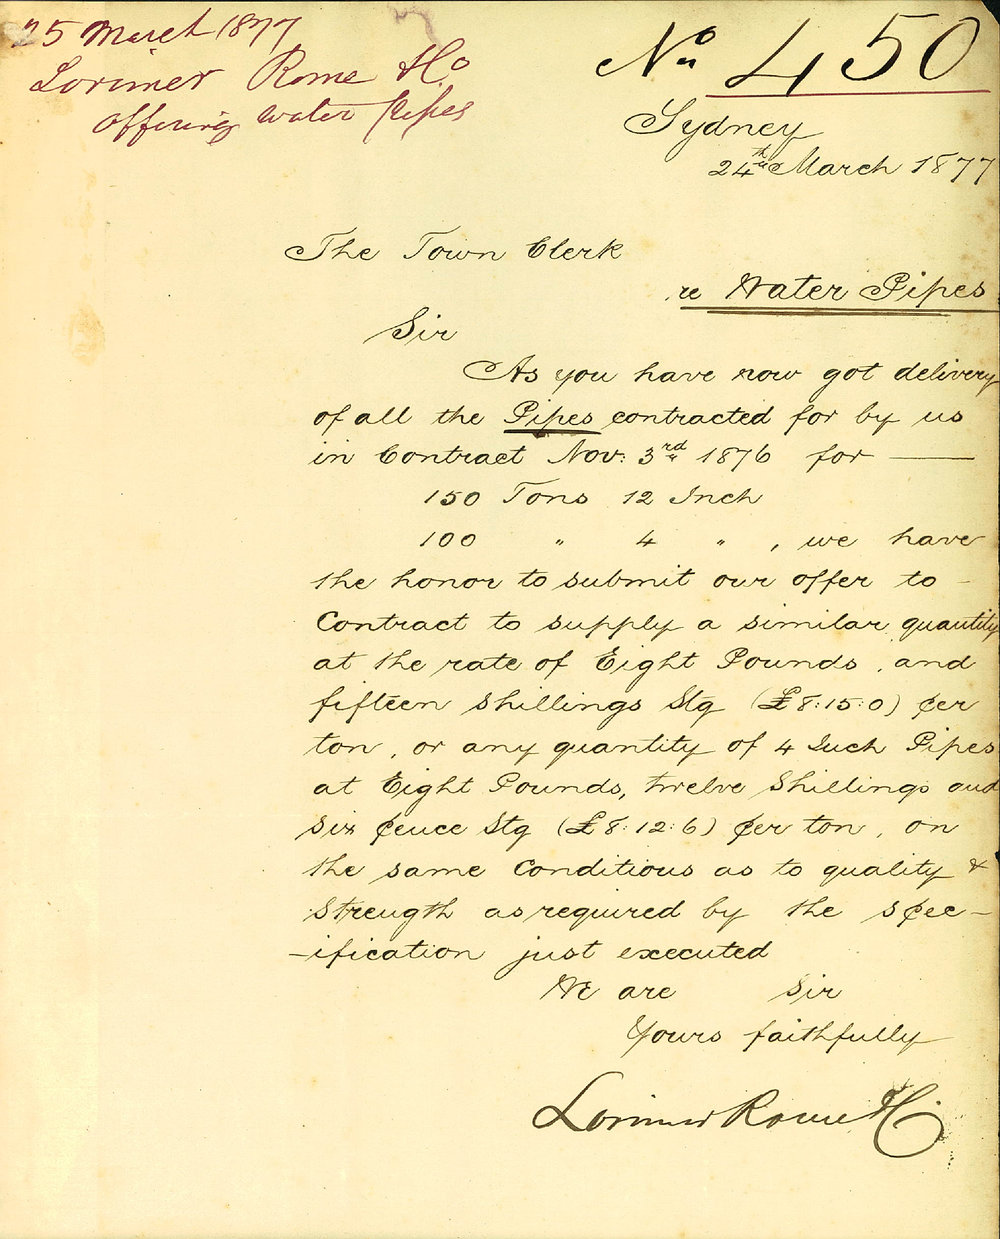 25 March 1877
Lorimer Rome & Co
offering water pipes
No 450
Sydney
24th March 1877
The Town Clerk
re Water Pipes
Sir
As you have now got delivery
of all the Pipes contracted for by us
in Contract Nov: 3rd 1876 for —
150 Tons 12 Inch
100 " 4 " , we have
the honor to submit our offer to -
Contract to supply a similar quantity
at the rate of Eight Pounds, and
fifteen shillings Stg (£8:15:0) per
ton, or any quantity of 4 Inch Pipes
at Eight Pounds, twelve Shillings and
Six pence Stg (£8:12:6) per ton, on
the same Conditions as to quality &
Strength as required by the spec-
-ification just executed
We are Sir
Yours faithfully
Lorimer Rome & Co